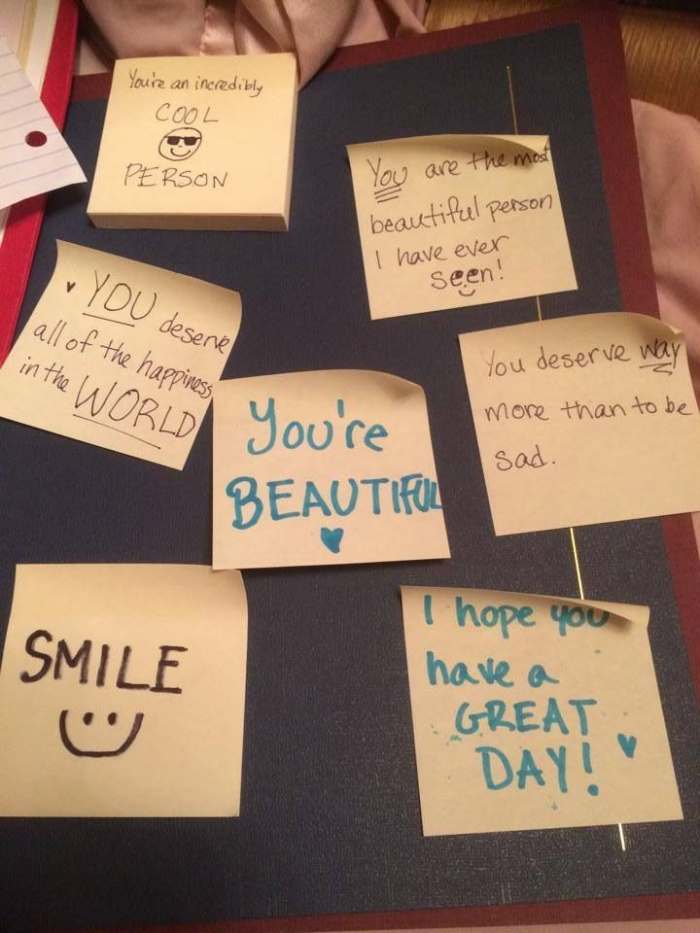 You're an incredibly
COOL
PERSON
You are the most
beautiful person
I have ever
seen!
YOU deserve
all of the happiness
in the WORLD
You're
BEAUTIFUL
You deserve way
more than to be
sad.
SMILE
I hope you
have a
GREAT
DAY!